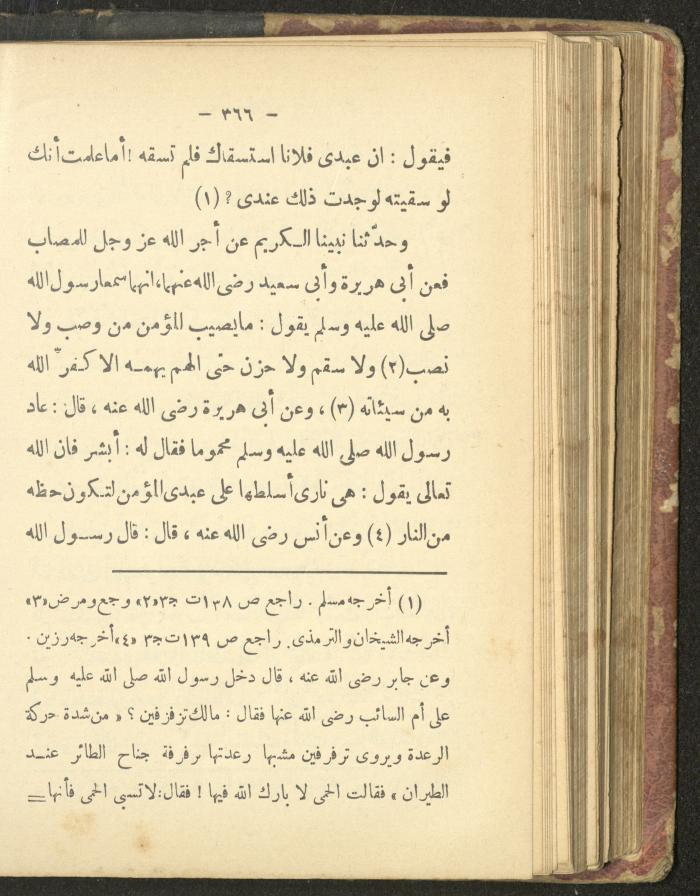 — ٣٦٦ —
فيقول : ان عبدى فلانا استسقاك فلم تسقه ! أما علمت أنك
لو سقيته لوجدت ذلك عندى ؟ (١)
وحدّثنا نبينا الكريم عن أجر الله عز وجل للمصاب
فعن أبى هريرة وأبى سعيد رضى الله عنهما، انهما سمعا رسول الله
صلى الله عليه وسلم يقول : مايصيب المؤمن من وصب ولا
نصب (٢) ولا سقم ولا حزن حتى الهم يهمه الا كفرّ الله
به من سيئاته (٣) ، وعن أبى هريرة رضى الله عنه ، قال : عاد
رسول الله صلى الله عليه وسلم محموما فقال له : أبشر فان الله
تعالى يقول : هى نارى أسلطها على عبدى المؤمن لتكون حظه
من النار (٤) وعن أنس رضى الله عنه ، قال : قال رسول الله
(١) أخرجه مسلم . راجع ص ١٣٨ت ج٣ «٢» وجع ومرض «٣»
أخرجه الشيخان والترمذى. راجع ص ١٣٩ت ج٣ «٤» أخرجه رزين .
وعن جابر رضى الله عنه ، قال دخل رسول الله صلى الله عليه وسلم
على أم السائب رضى الله عنها فقال : مالك تزفزفين ؟ « من شدة حركة
الرعدة ويروى ترفرفين مشبها رعدتها برفرفة جناح الطائر عند
الطيران » فقالت الحمى لا بارك الله فيها ! فقال: لاتسبى الحمى فأنها =